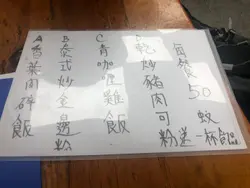 A香葉肉碎飯
B泰式炒金邊粉
C青咖喱雞飯
D乾炒豬肉可粉
每餐50蚊
送一杯飲品